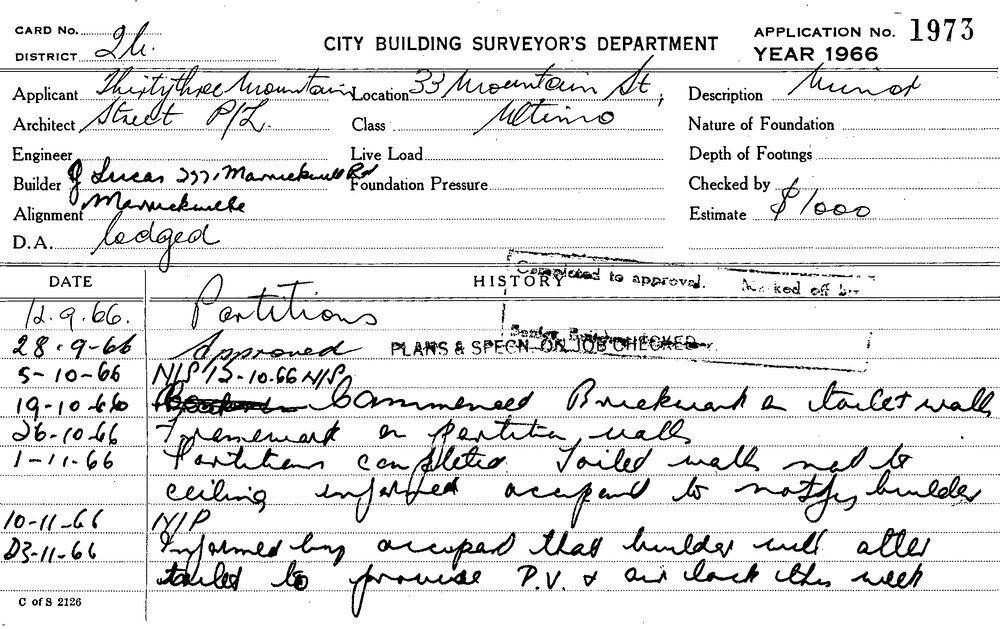 CARD No. APPLICATION No. 1973
DISTRICT 2h. CITY BUILDING SURVEYOR'S DEPARTMENT YEAR 1966
Applicant Thirtythree Mountain Location 33 Mountain St, Description Minor
Architect Street P/L. Class Ultimo Nature of Foundation
Engineer Live Load Depth of Footings
Builder J Lucas 277, Marrickville Rd Foundation Pressure Checked by
Alignment Marrickville Estimate $1000
D.A. lodged
Completed to approval. Marked off
DATE HISTORY
12.9.66. Partitions
28.9-66 Approved PLANS & SPECN. ON JOB CHECKED
5-10-66 N/P 12-10-66 N/P
19-10-66 Commenced Brickwork on toilet walls
26-10-66 Framework on partition walls
1-11-66 Partitions completed. Toilet walls not to
ceiling informed occupant to notify builder
10-11-66 N/P
23-11-66 Informed by occupant that builder will alter
toilet to provide P.V. & air lock this week
C of S 2126